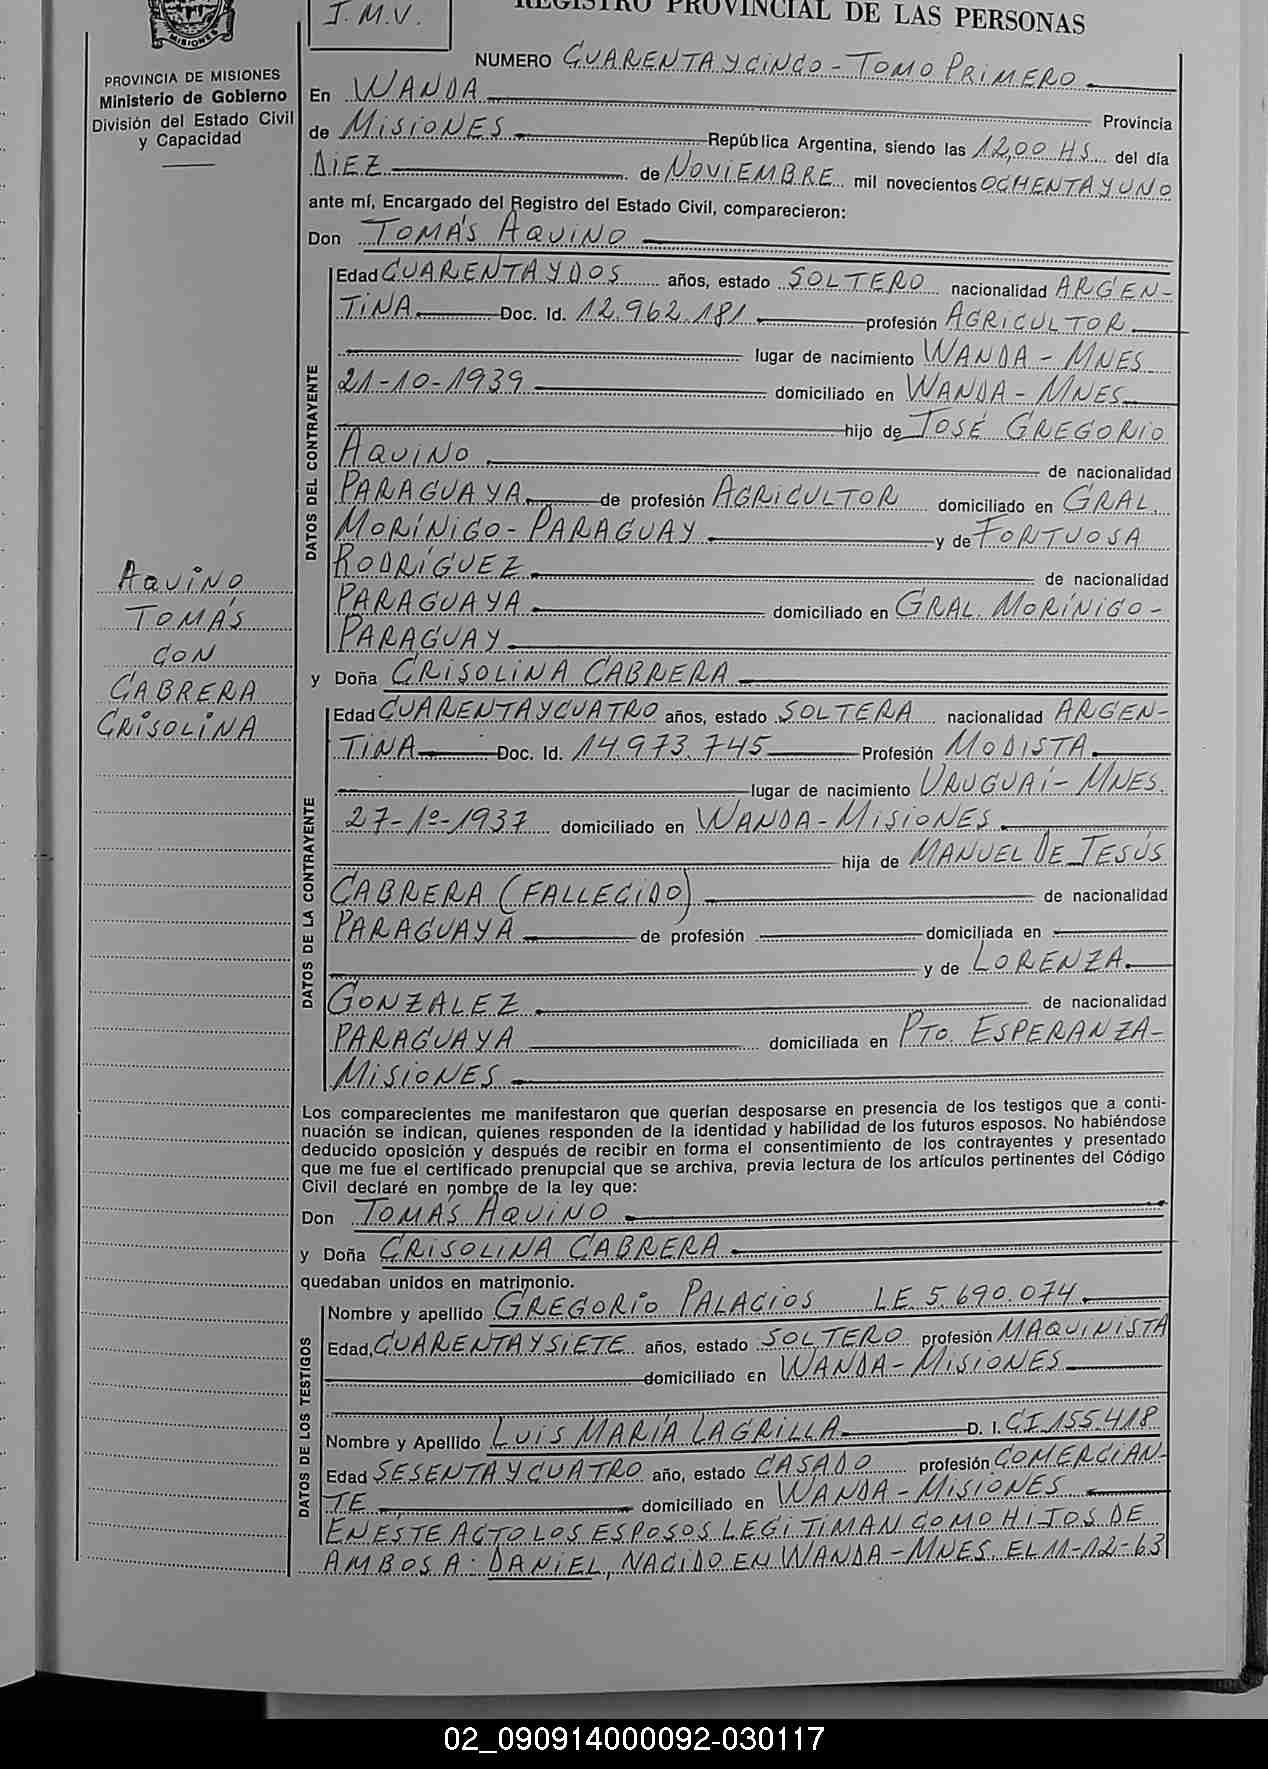 MISIONES
J.M.V.
REGISTRO PROVINCIAL DE LAS PERSONAS
PROVINCIA DE MISIONES
Ministerio de Gobierno
División del Estado Civil
y Capacidad
AQUINO
TOMÁS
CON
CABRERA
CRISOLINA
NUMERO CUARENTA Y CINCO - TOMO PRIMERO
En WANDA Provincia
de MISIONES República Argentina, siendo las 12,00 HS. del día
DIEZ de NOVIEMBRE mil novecientos OCHENTA Y UNO
ante mí, Encargado del Registro del Estado Civil, comparecieron:
Don TOMÁS AQUINO
DATOS DEL CONTRAYENTE
Edad CUARENTA Y DOS años, estado SOLTERO nacionalidad ARGEN-
TINA Doc. Id. 12.962.181 profesión AGRICULTOR
lugar de nacimiento WANDA - MNES
21-10-1939 domiciliado en WANDA - MNES
hijo de JOSÉ GREGORIO
AQUINO de nacionalidad
PARAGUAYA de profesión AGRICULTOR domiciliado en GRAL.
MORÍNIGO - PARAGUAY y de FORTUOSA
RODRÍGUEZ de nacionalidad
PARAGUAYA domiciliado en GRAL. MORÍNIGO -
PARAGUAY
y Doña CRISOLINA CABRERA
DATOS DE LA CONTRAYENTE
Edad CUARENTA Y CUATRO años, estado SOLTERA nacionalidad ARGEN-
TINA Doc. Id. 14.973.745 Profesión MODISTA
lugar de nacimiento URUGUAÍ - MNES.
27-1º-1937 domiciliado en WANDA - MISIONES
hija de MANUEL DE JESÚS
CABRERA (FALLECIDO) de nacionalidad
PARAGUAYA de profesión domiciliada en
y de LORENZA
GONZALEZ de nacionalidad
PARAGUAYA domiciliada en PTO. ESPERANZA -
MISIONES
Los comparecientes me manifestaron que querían desposarse en presencia de los testigos que a conti-
nuación se indican, quienes responden de la identidad y habilidad de los futuros esposos. No habiéndose
deducido oposición y después de recibir en forma el consentimiento de los contrayentes y presentado
que me fue el certificado prenupcial que se archiva, previa lectura de los artículos pertinentes del Código
Civil declaré en nombre de la ley que:
Don TOMÁS AQUINO
y Doña CRISOLINA CABRERA
quedaban unidos en matrimonio.
DATOS DE LOS TESTIGOS
Nombre y apellido GREGORIO PALACIOS LE. 5.690.074
Edad, CUARENTA Y SIETE años, estado SOLTERO profesión MAQUINISTA
domiciliado en WANDA - MISIONES
Nombre y Apellido LUIS MARÍA LAGRILLA D. I. CI.155.418
Edad SESENTA Y CUATRO año, estado CASADO profesión COMERCIAN-
TE domiciliado en WANDA - MISIONES
EN ESTE ACTO LOS ESPOSOS LEGITIMAN COMO HIJOS DE
AMBOS A: DANIEL, NACIDO EN WANDA - MNES EL 11-12-63
02_090914000092-030117